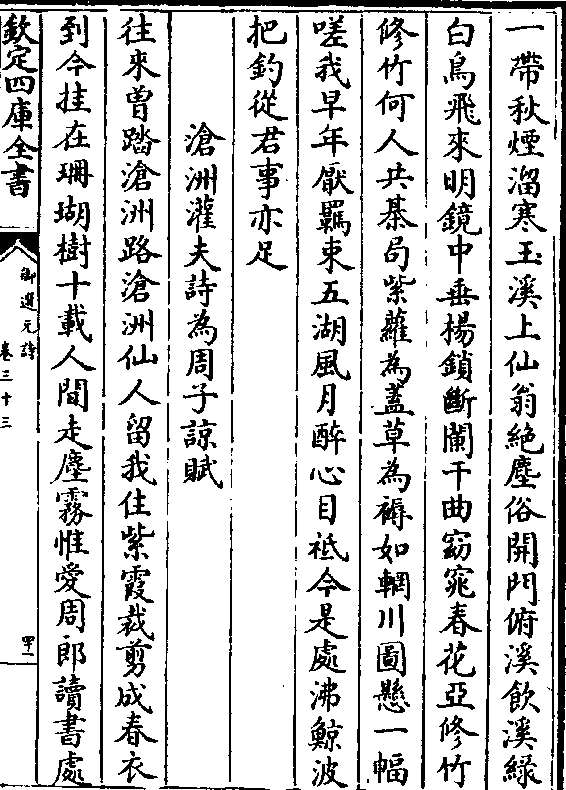 一帶秋煙溜寒玉溪上仙翁絶塵俗開門俯溪飲溪緑
白鳥飛來明鏡中垂楊鎖斷闌干曲窈窕春花亞修竹
修竹何人共棊局紫蘿為蓋草為褥如輞川圖懸一幅
嗟我早年厭羈束五湖風月醉心目祗今是處沸鯨波
把釣從君事亦足
滄洲灌夫詩為周子諒賦
往來曽踏滄洲路滄洲仙人留我住紫霞裁剪成春衣
到今挂在珊瑚樹十載人間走塵霧惟愛周郎讀書處
欽定四庫全書
御選元詩
卷三十三
四十一